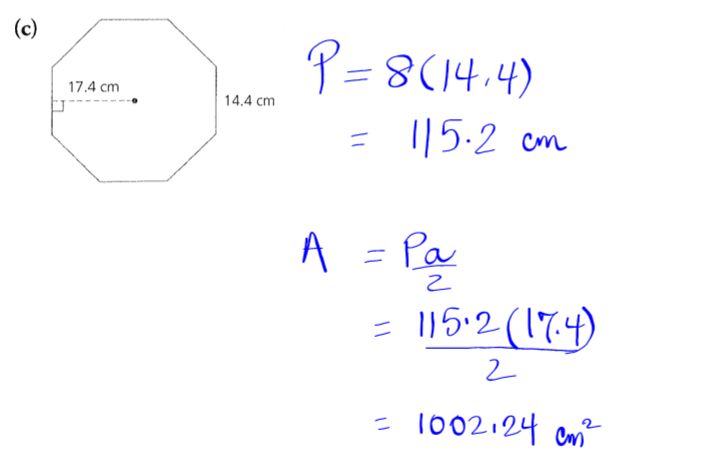 (c)
17.4 cm
14.4 cm
P = 8(14.4)
= 115.2 cm
A = Pa/2
= 115.2(17.4)/2
= 1002.24 cm²